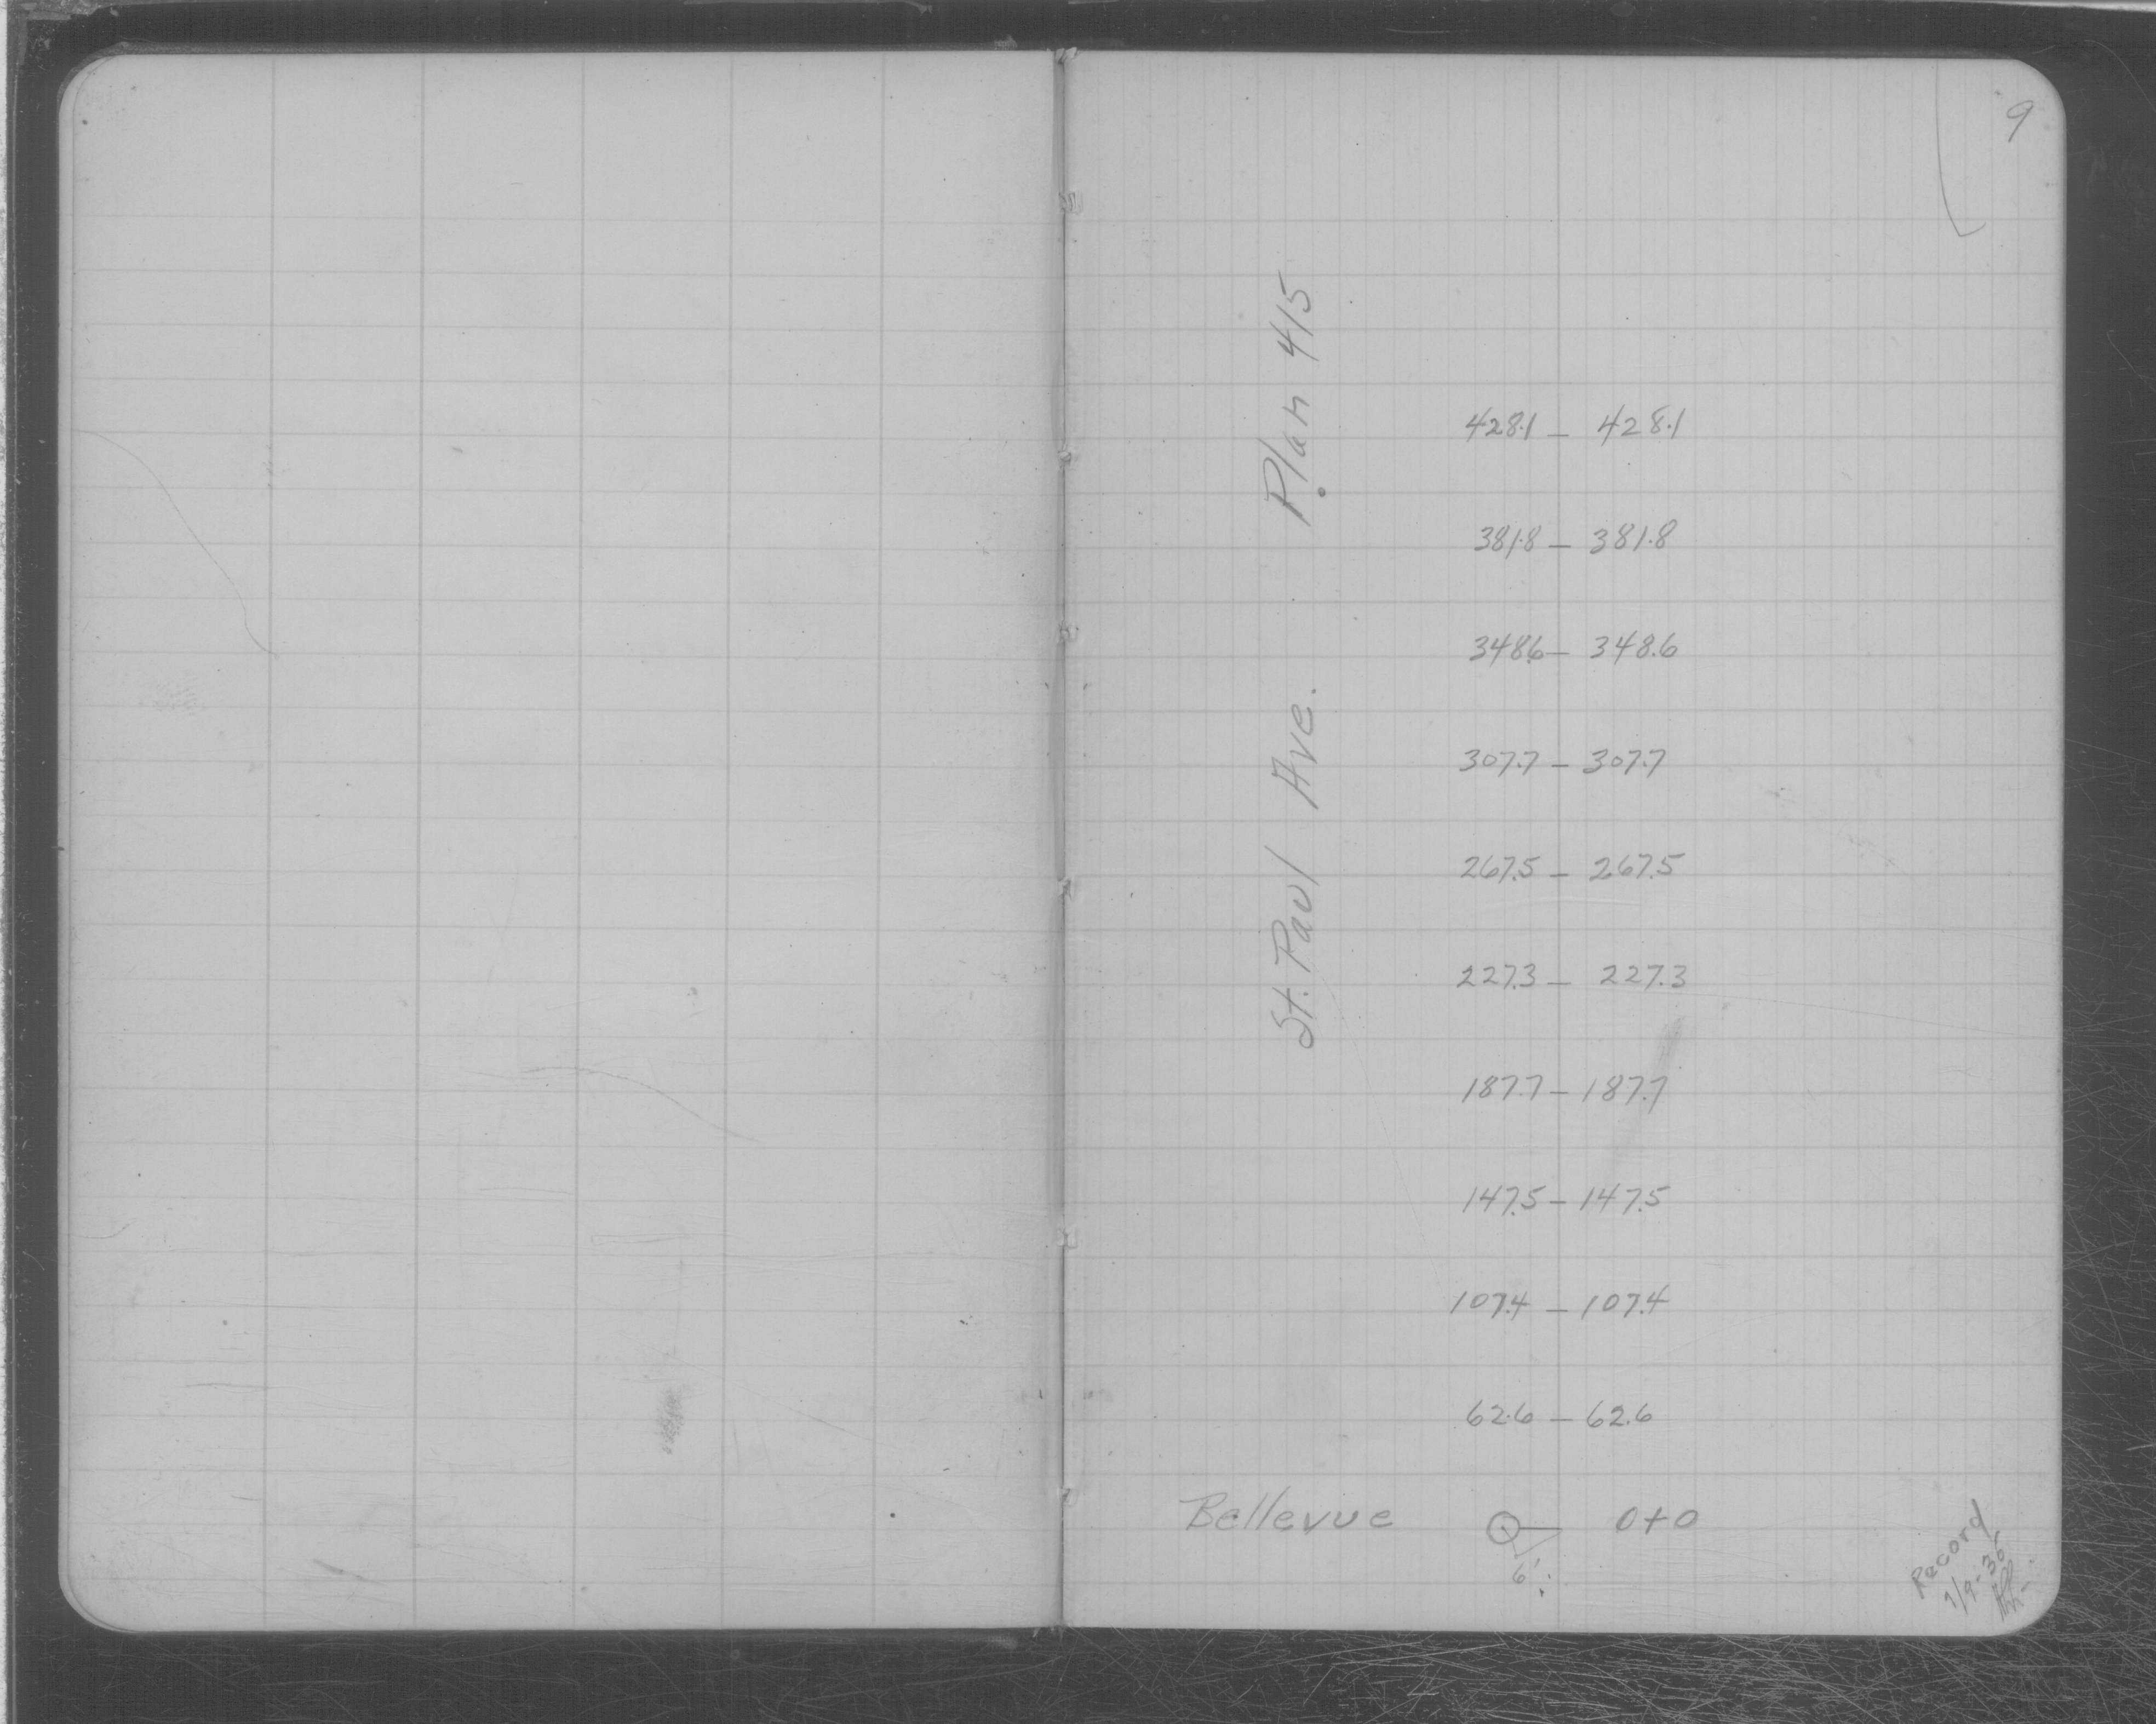 9
St. Paul Ave. Plan 415
428.1 – 428.1
381.8 – 381.8
348.6 – 348.6
307.7 – 307.7
267.5 – 267.5
227.3 – 227.3
187.7 – 187.7
147.5 – 147.5
107.4 – 107.4
62.6 – 62.6
Bellevue 0+0
6'
Record